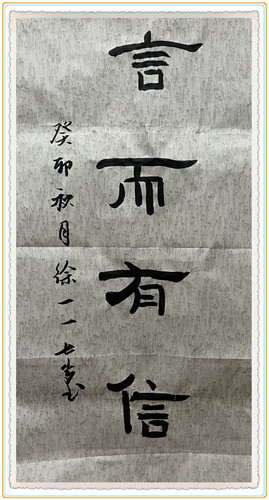 言而有信
癸卯秋月徐一一七書